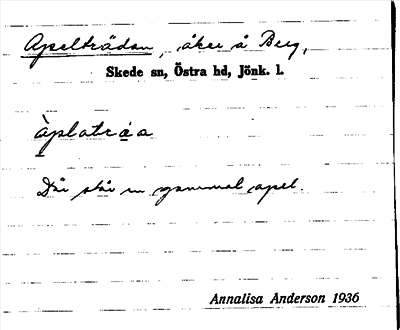 Apelträdan, åker å Berg,
Skede sn, Östra hd, Jönk. l.
àplatrá̲a
Där står en gammal apel.
Annalisa Anderson 1936